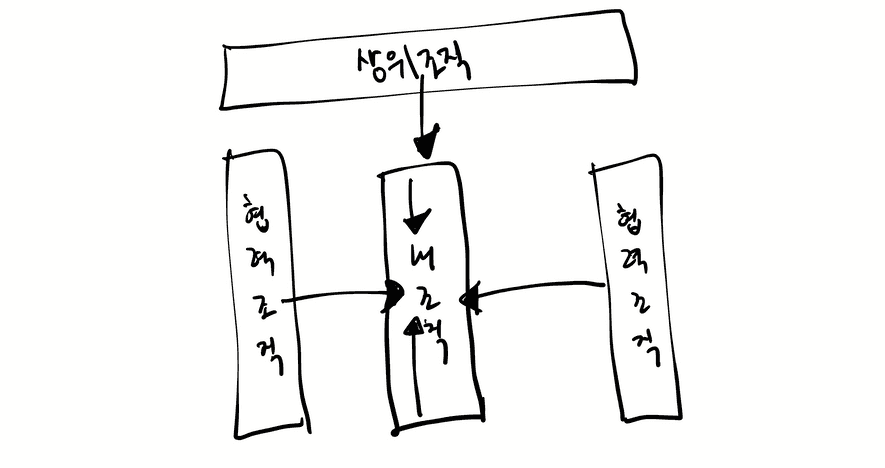 상위조직
협력조직
내조직
협력조직